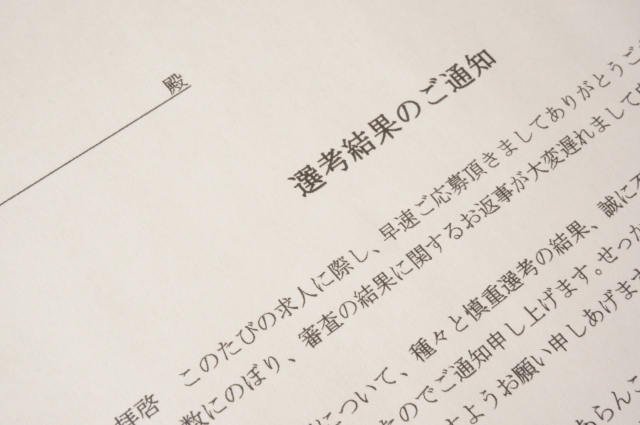 殿
選考結果のご通知
拝啓 このたびの求人に際し、早速ご応募頂きましてありがとうご
数にのぼり、審査の結果に関するお返事が大変遅れまして
について、種々と慎重選考の結果、誠に不
たのでご通知申し上げます。せっか
すようお願い申しあげます
あらんこ